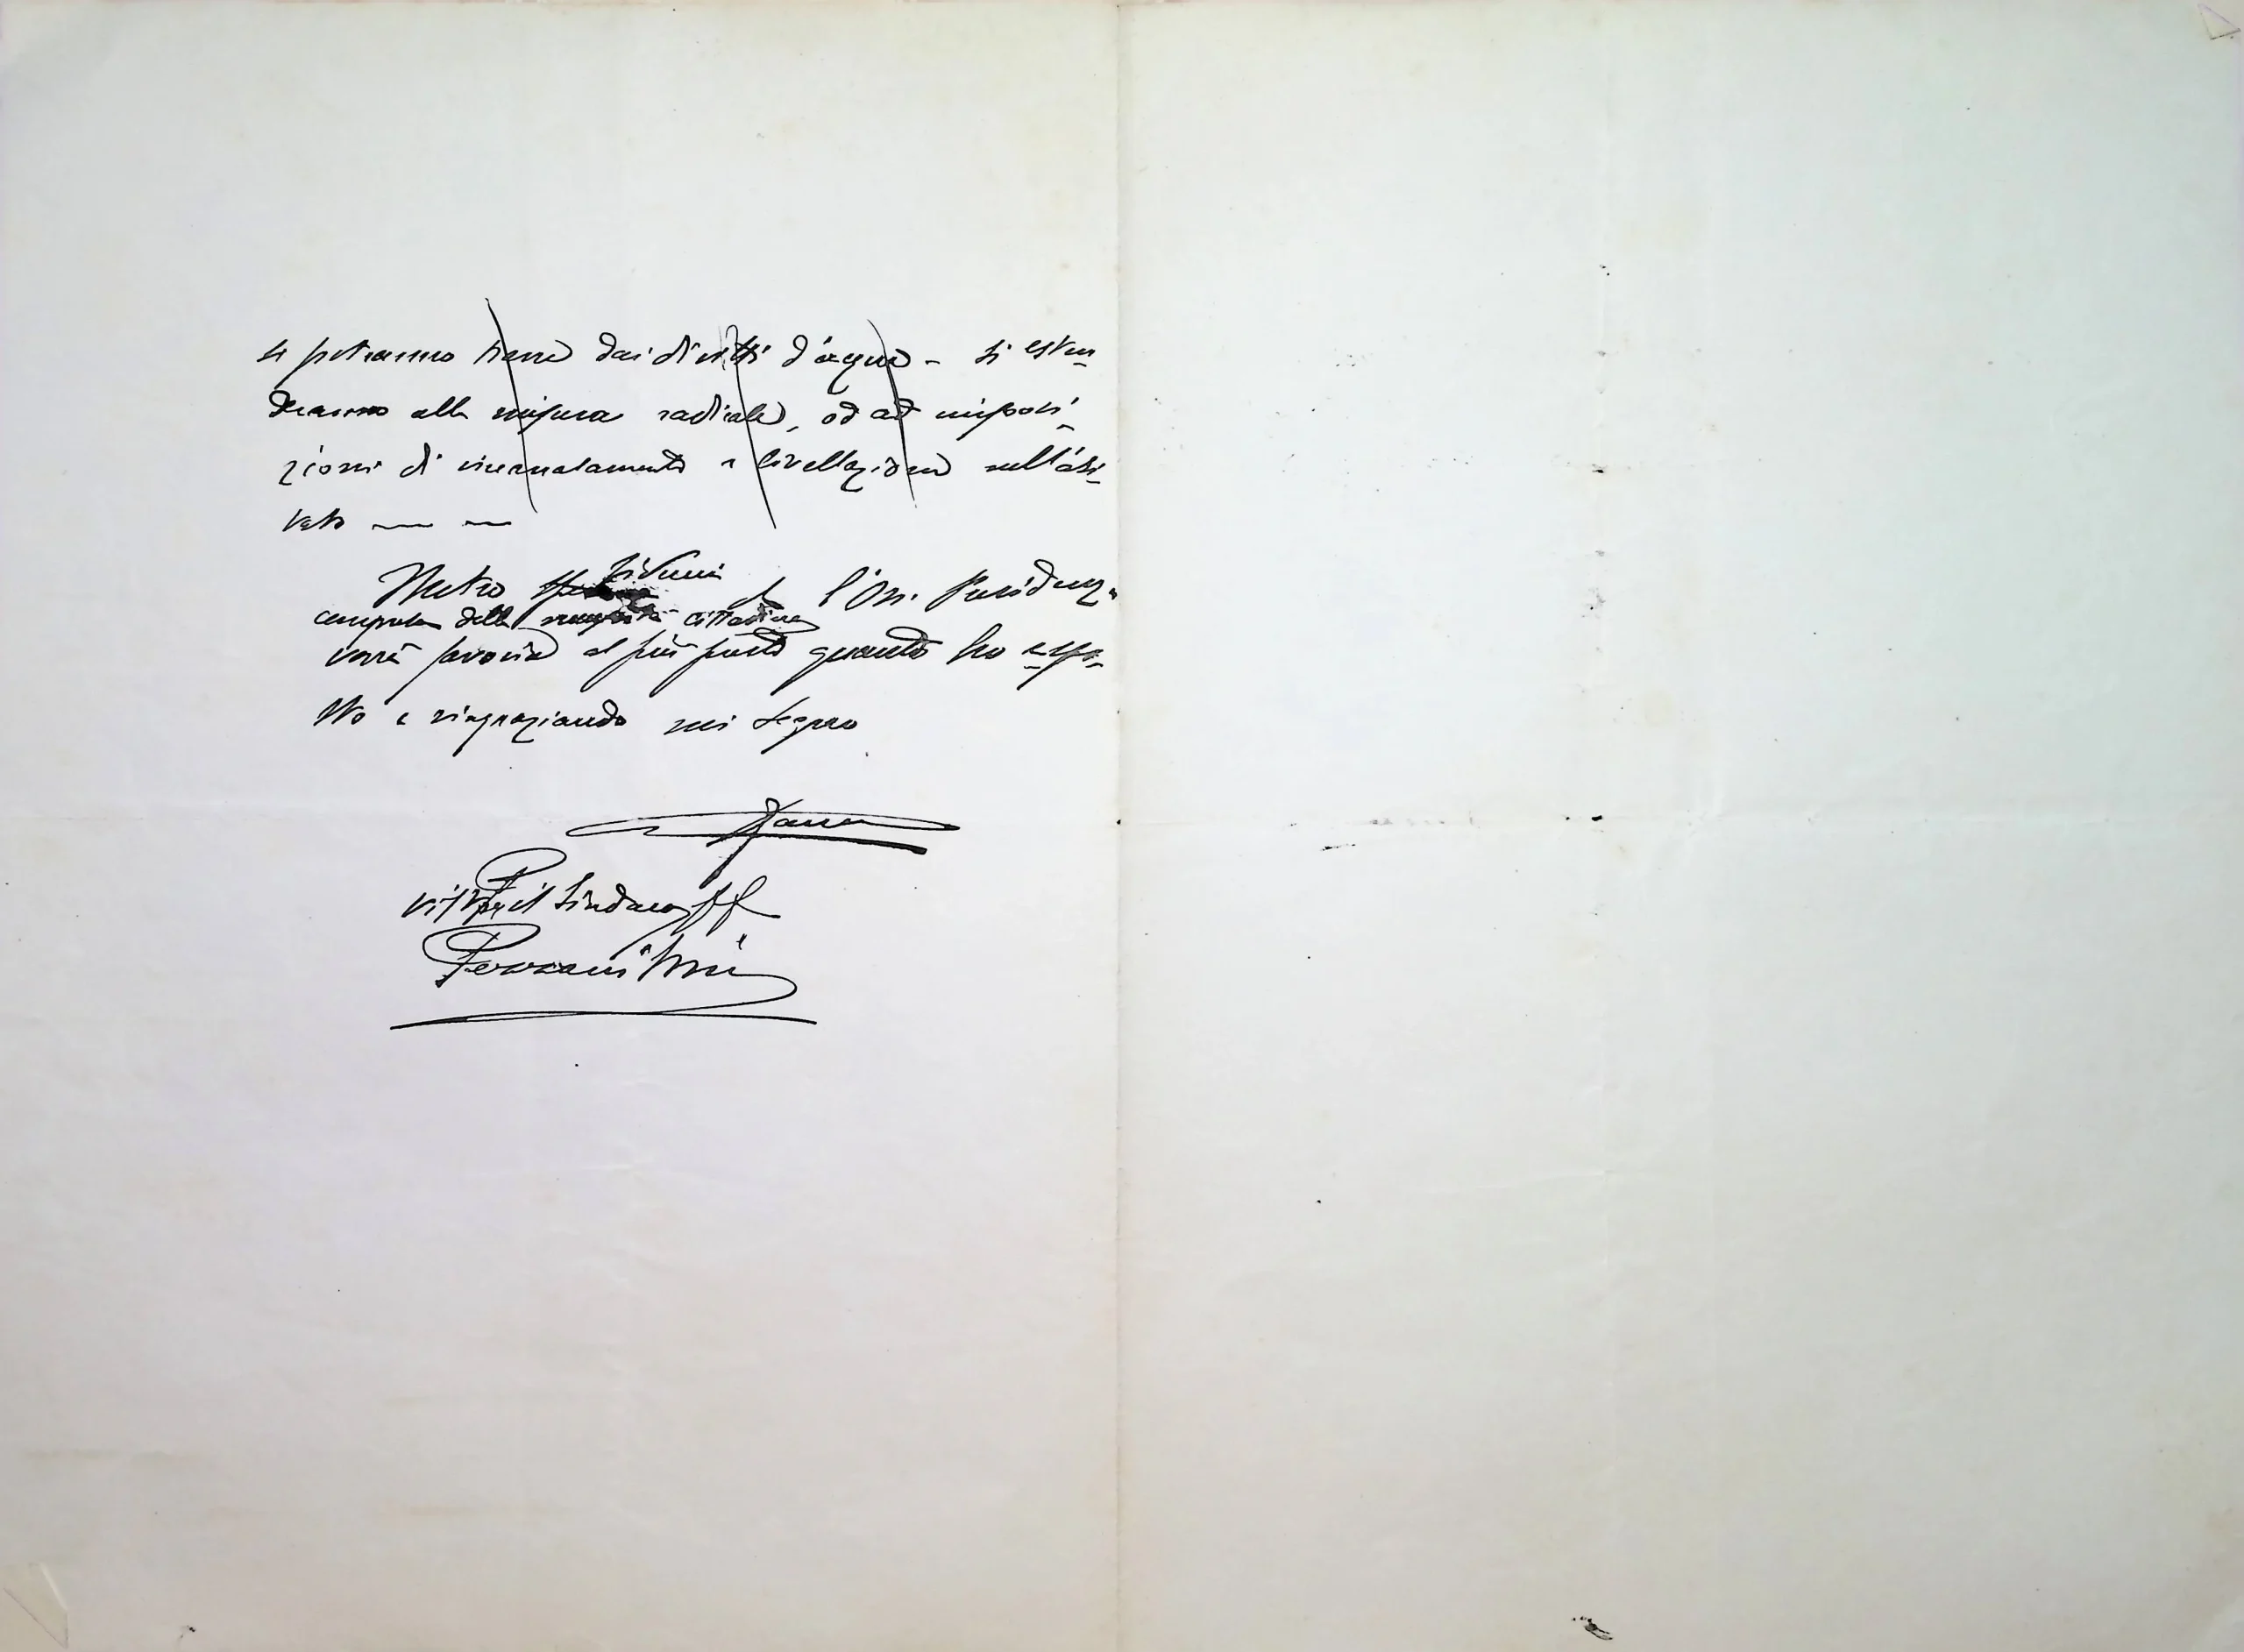 si potranno trarre dai diritti d'acqua - si esten-
deranno alla misura radicale, od ad imposi-
zioni di incanalamento e livellazione nell'abi-
tato
Nutro fiducia che l'On. Presidenza
compresa della cittadina
vorrà favorire al più presto quanto ho espo-
sto e ringraziando mi segno
Visto per il Sindaco ff